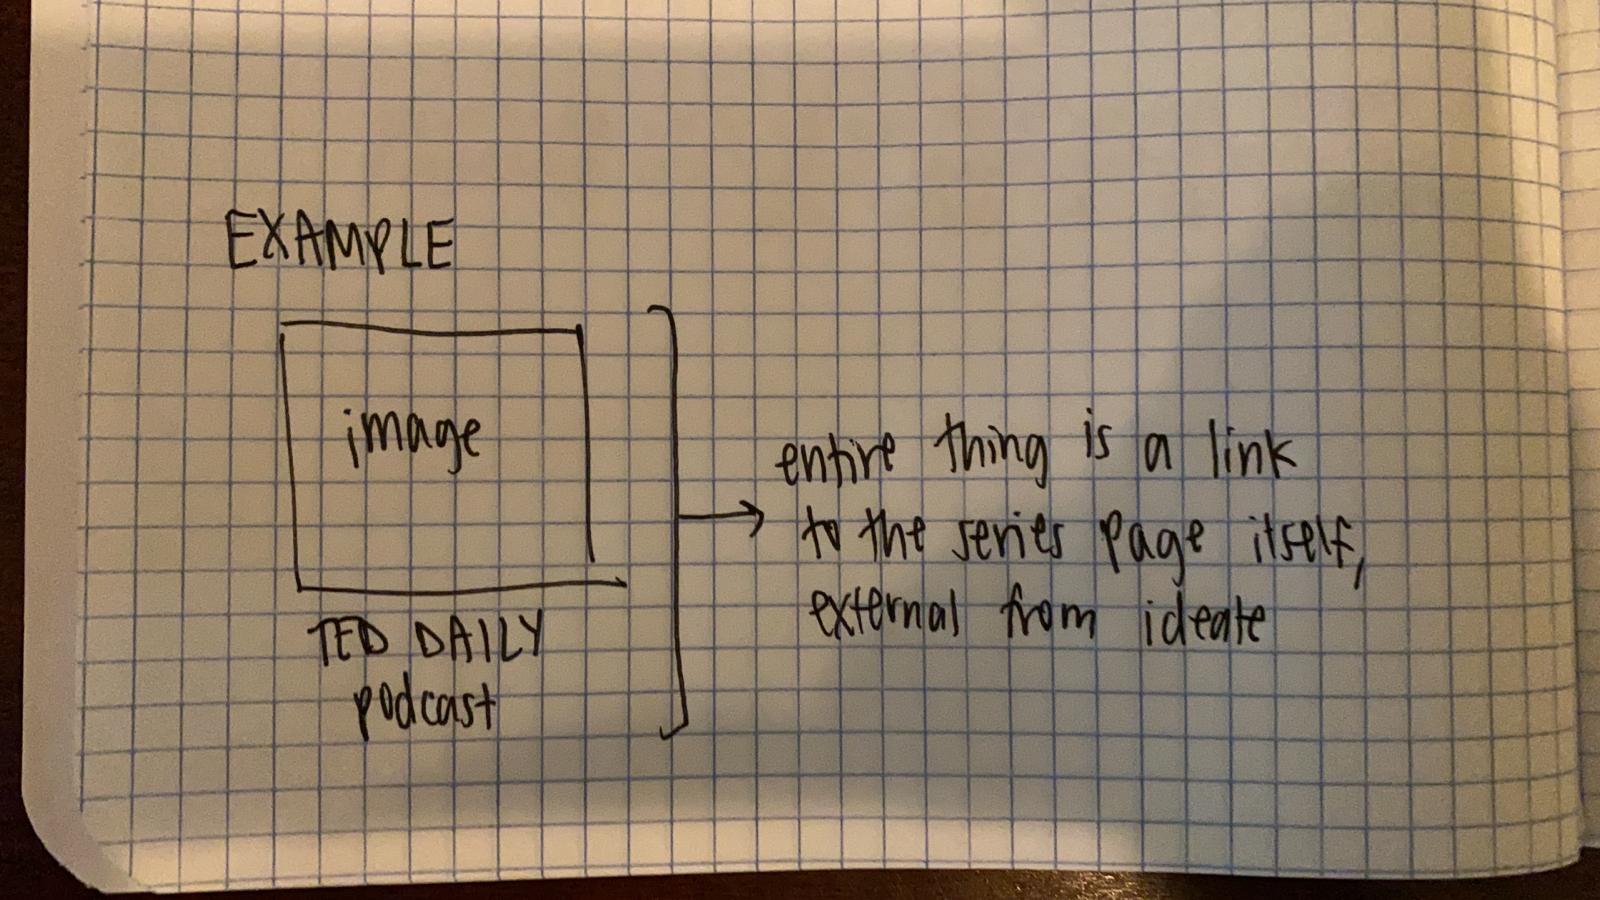 EXAMPLE
image
TED DAILY
podcast
entire thing is a link
to the series page itself,
external from ideate